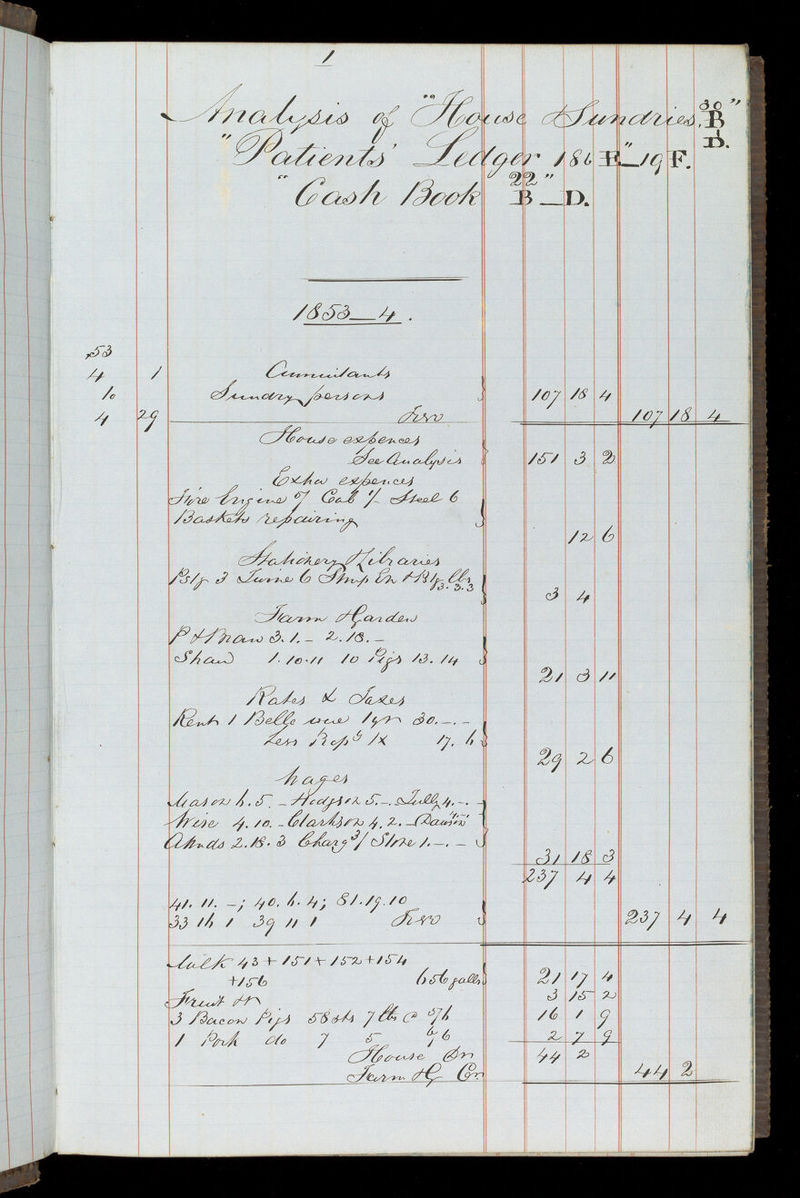 1
Analysis of "House Sundries, 30 B" 1 D.
"Patients' Ledger 186 E"—19 F.
"Cash Book 22 B"—D.
1853—4.
53
4 1
10 Sundry persons 107 18 4
4 29 107 18 4
House expences
See Analysis 151 3 2
Extra expences
Fire Engine Cab 1/- Steel 6
Baskets repairing 12 6
Stationery & Libraries
3.3.3 3 4
Farm & Garden
P & Braw 3.1.- 2.18.-
Shaw 1.10.11 10 Pigs 13.14 21 3 11
Rates & Taxes
Rent 1 Belle vue 1 yr 30.-.-
Less 17.6 29 2 6
Wages
Mason 6.5.- Hodgson 5.-. Tully 4.-.-
Wise 4.10.- Clarkson 4.2.- Dawson
2.18.3 Charg 3/ Stone 1.-.- 31 18 3
237 4 4
41.11.-; 40.6.4; 81.19.10
33 16 1 39 11 1 237 4 4
Milk 43+151+152+154
+156 656 galls 21 17 4
Fruit 3 15 2
3 Bacon Pigs 58 sts 7 lbs @ 5/6 16 1 9
1 Pork do 7 5 6/6 2 7 9
House Dr 44 2
Farm &c Cr. 44 2